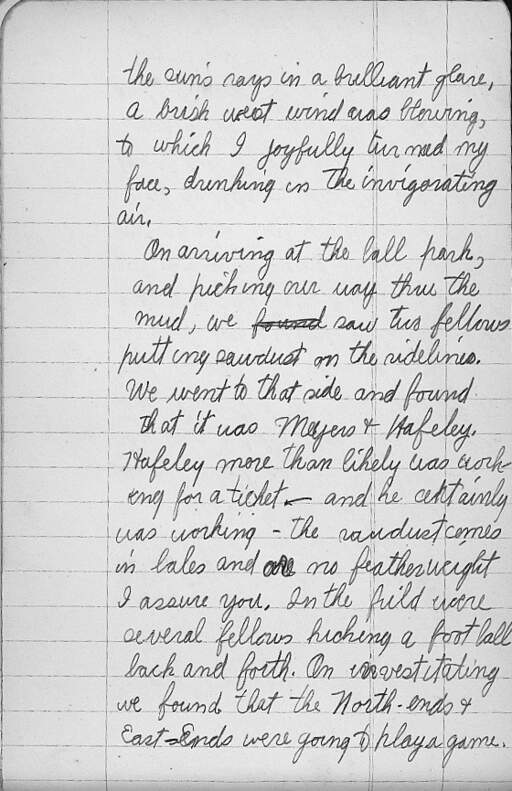 the sun's rays in a brilliant glare,
a brisk west wind was blowing,
to which I joyfully turned my
face, drinking in the invigorating
air.
On arriving at the ball park,
and picking our way thru the
mud, we found saw two fellows
putting sawdust on the sidelines.
We went to that side and found
that it was Meyers & Hafeley.
Hafeley more than likely was work-
ing for a ticket — and he certainly
was working - the sawdust comes
in bales and are no featherweight
I assure you. In the field were
several fellows kicking a foot ball
back and forth. On investitating
we found that the North-ends &
East-Ends were going to play a game.